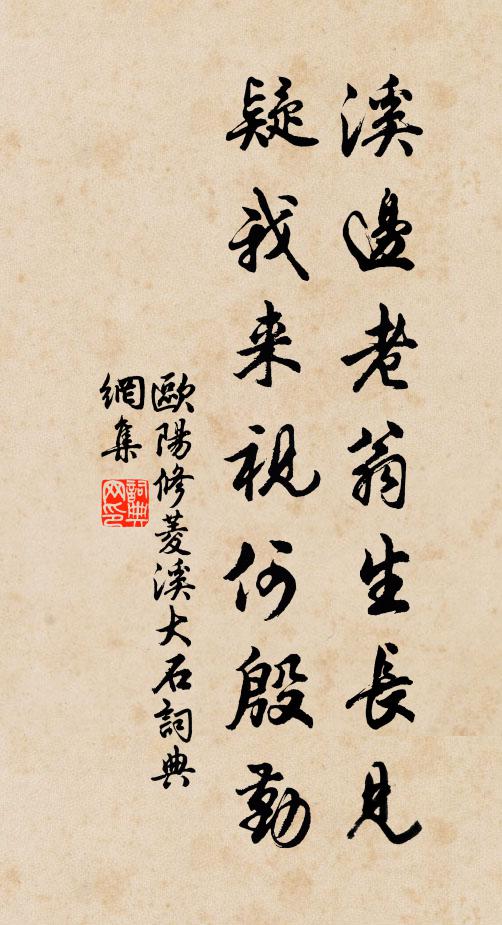 溪邊老翁生長見
疑我来視何殷勤
歐陽修菱溪大石詞典
網集
詞典
网印